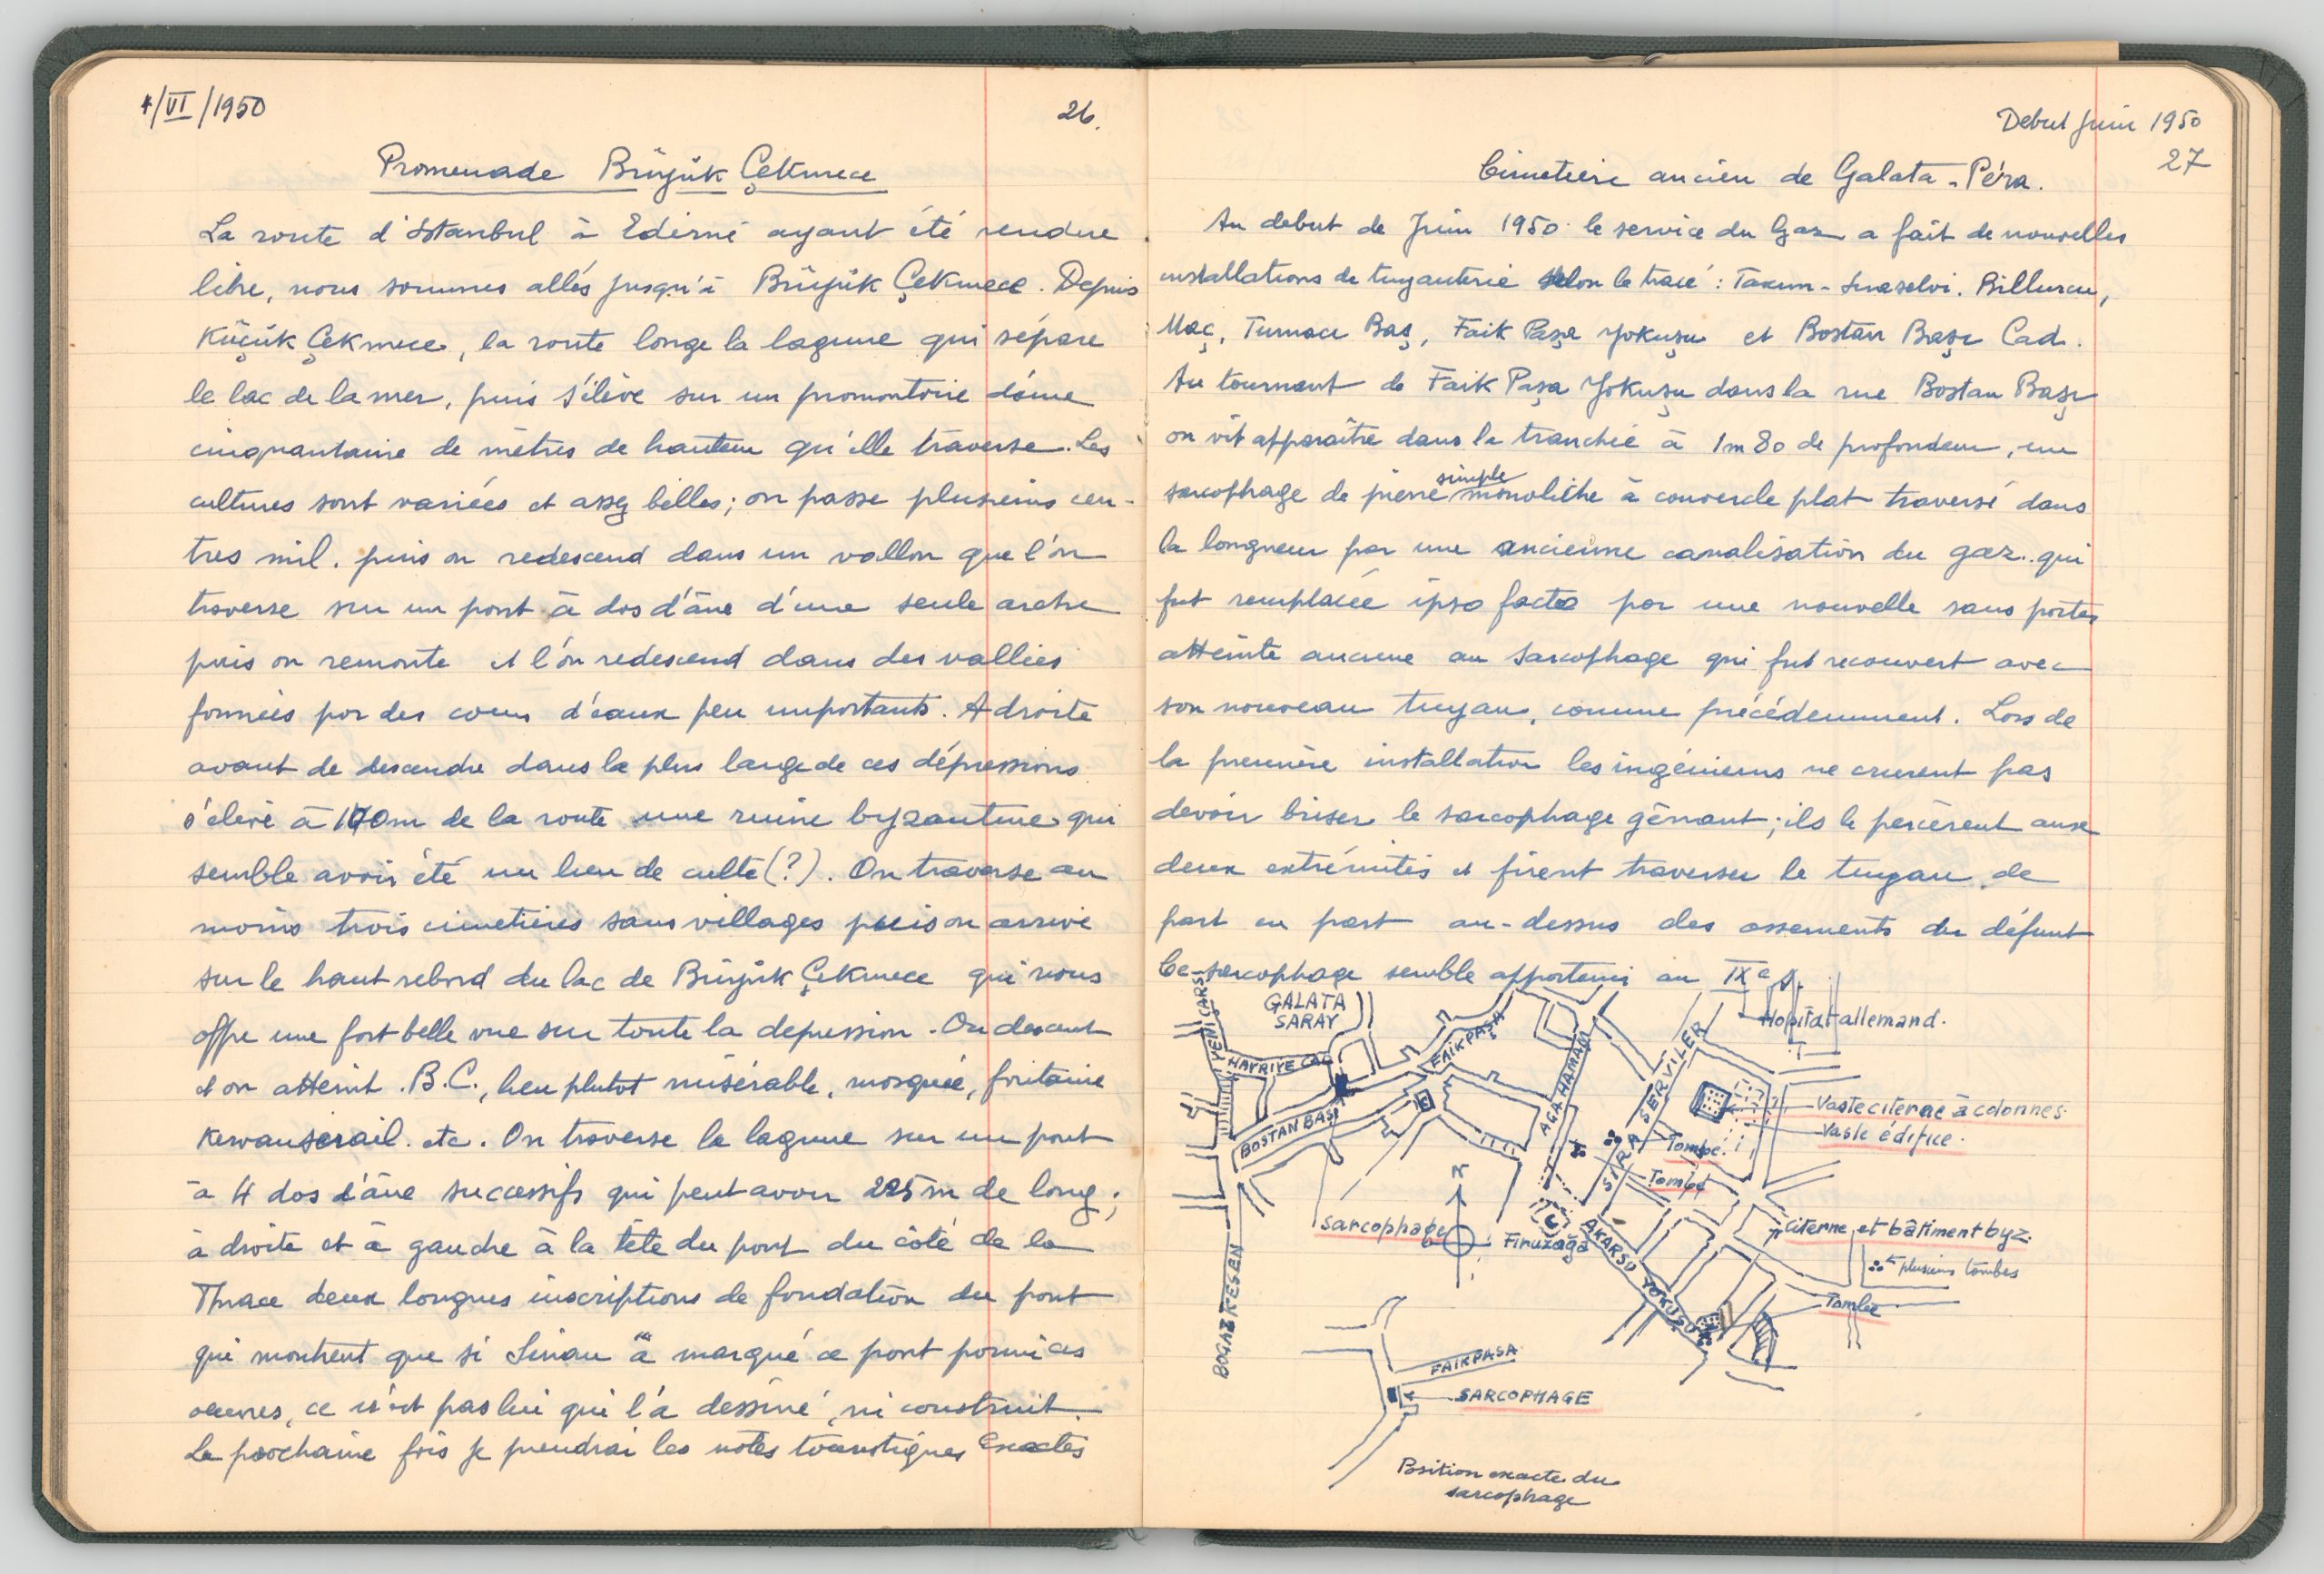 4/VI/1950
26.
Promenade Büyük Çekmece
La route d'Istanbul à Edirné ayant été rendue
libre, nous sommes allés jusqu'à Büyük Çekmece. Depuis
Küçük Çekmece, la route longe la lagune qui sépare
le lac de la mer, puis s'élève sur un promontoire d'une
cinquantaine de mètres de hauteur qu'elle traverse. Les
cultures sont variées et assez belles; on passe plusieurs cen-
tres mil. puis on redescend dans un vallon que l'on
traverse sur un pont à dos d'âne d'une seule arche
puis on remonte et l'on redescend dans des vallées
formées par des cours d'eaux peu importants. A droite
avant de descendre dans la plus large de ces dépressions
s'élève à 170m de la route une ruine byzantine qui
semble avoir été un lieu de culte(?). On traverse au
moins trois cimetières sans villages puis on arrive
sur le haut rebord du lac de Büyük Çekmece qui nous
offre une fort belle vue sur toute la depression. On descent
et on atteint B.C., lieu plutot misérable, mosquée, fontaine
Kervanserail. etc. On traverse la lagune sur un pont
à 4 dos d'âne successifs qui peut avoir 225m de long;
à droite et à gauche à la tête du pont du côté de la
Thrace deux longues inscriptions de fondation du pont
qui montrent que si Sinan a marqué ce pont parmi ces
œuvres, ce n'est pas lui qui l'a dessiné, ni construit.
La prochaine fois je prendrai les notes touristiques exactes
Debut Juin 1950
27
Cimetiere ancien de Galata-Péra.
Au debut de Juin 1950 le service du Gaz a fait de nouvelles
installations de tuyauterie selon le tracé: Taxim - Sıraselvi. Billurcu,
Maç, Turnacı Baş, Faik Paşa Yokuşu et Bostan Başı Cad.
Au tournant de Faik Paşa Yokuşu dans la rue Bostan Başı
on vit apparaître dans la tranchée à 1m80 de profondeur, un
simple
sarcophage de pierre monolithe à couvercle plat traversé dans
la longueur par une ancienne canalisation du gaz. qui
fut remplacée ipso facto par une nouvelle sans porter
atteinte aucune au sarcophage qui fut recouvert avec
son nouveau tuyau, comme précédemment. Lors de
la première installation les ingénieurs ne crurent pas
devoir briser le sarcophage gênant; ils le percèrent aux
deux extrémités et firent traverser le tuyau de
part en part au-dessus des ossements du défunt
Ce sarcophage semble appartenir au IXe s.
YENI CARSI
GALATA
SARAY
HAYRIYE CAD
FAIKPAŞA
BOSTAN BAŞI
AGA HAMAM
SIRA SERVILER
Hopital allemand.
Vaste citerne à colonnes.
Vaste édifice.
Tombe.
Tombe
Sarcophage
N
Firuzağa
AKARSU YOKUŞU
Citerne et bâtiment byz.
plusieurs tombes
Tombe
BOGAZ KESEN
FAIKPASA
SARCOPHAGE
Position exacte du
sarcophage